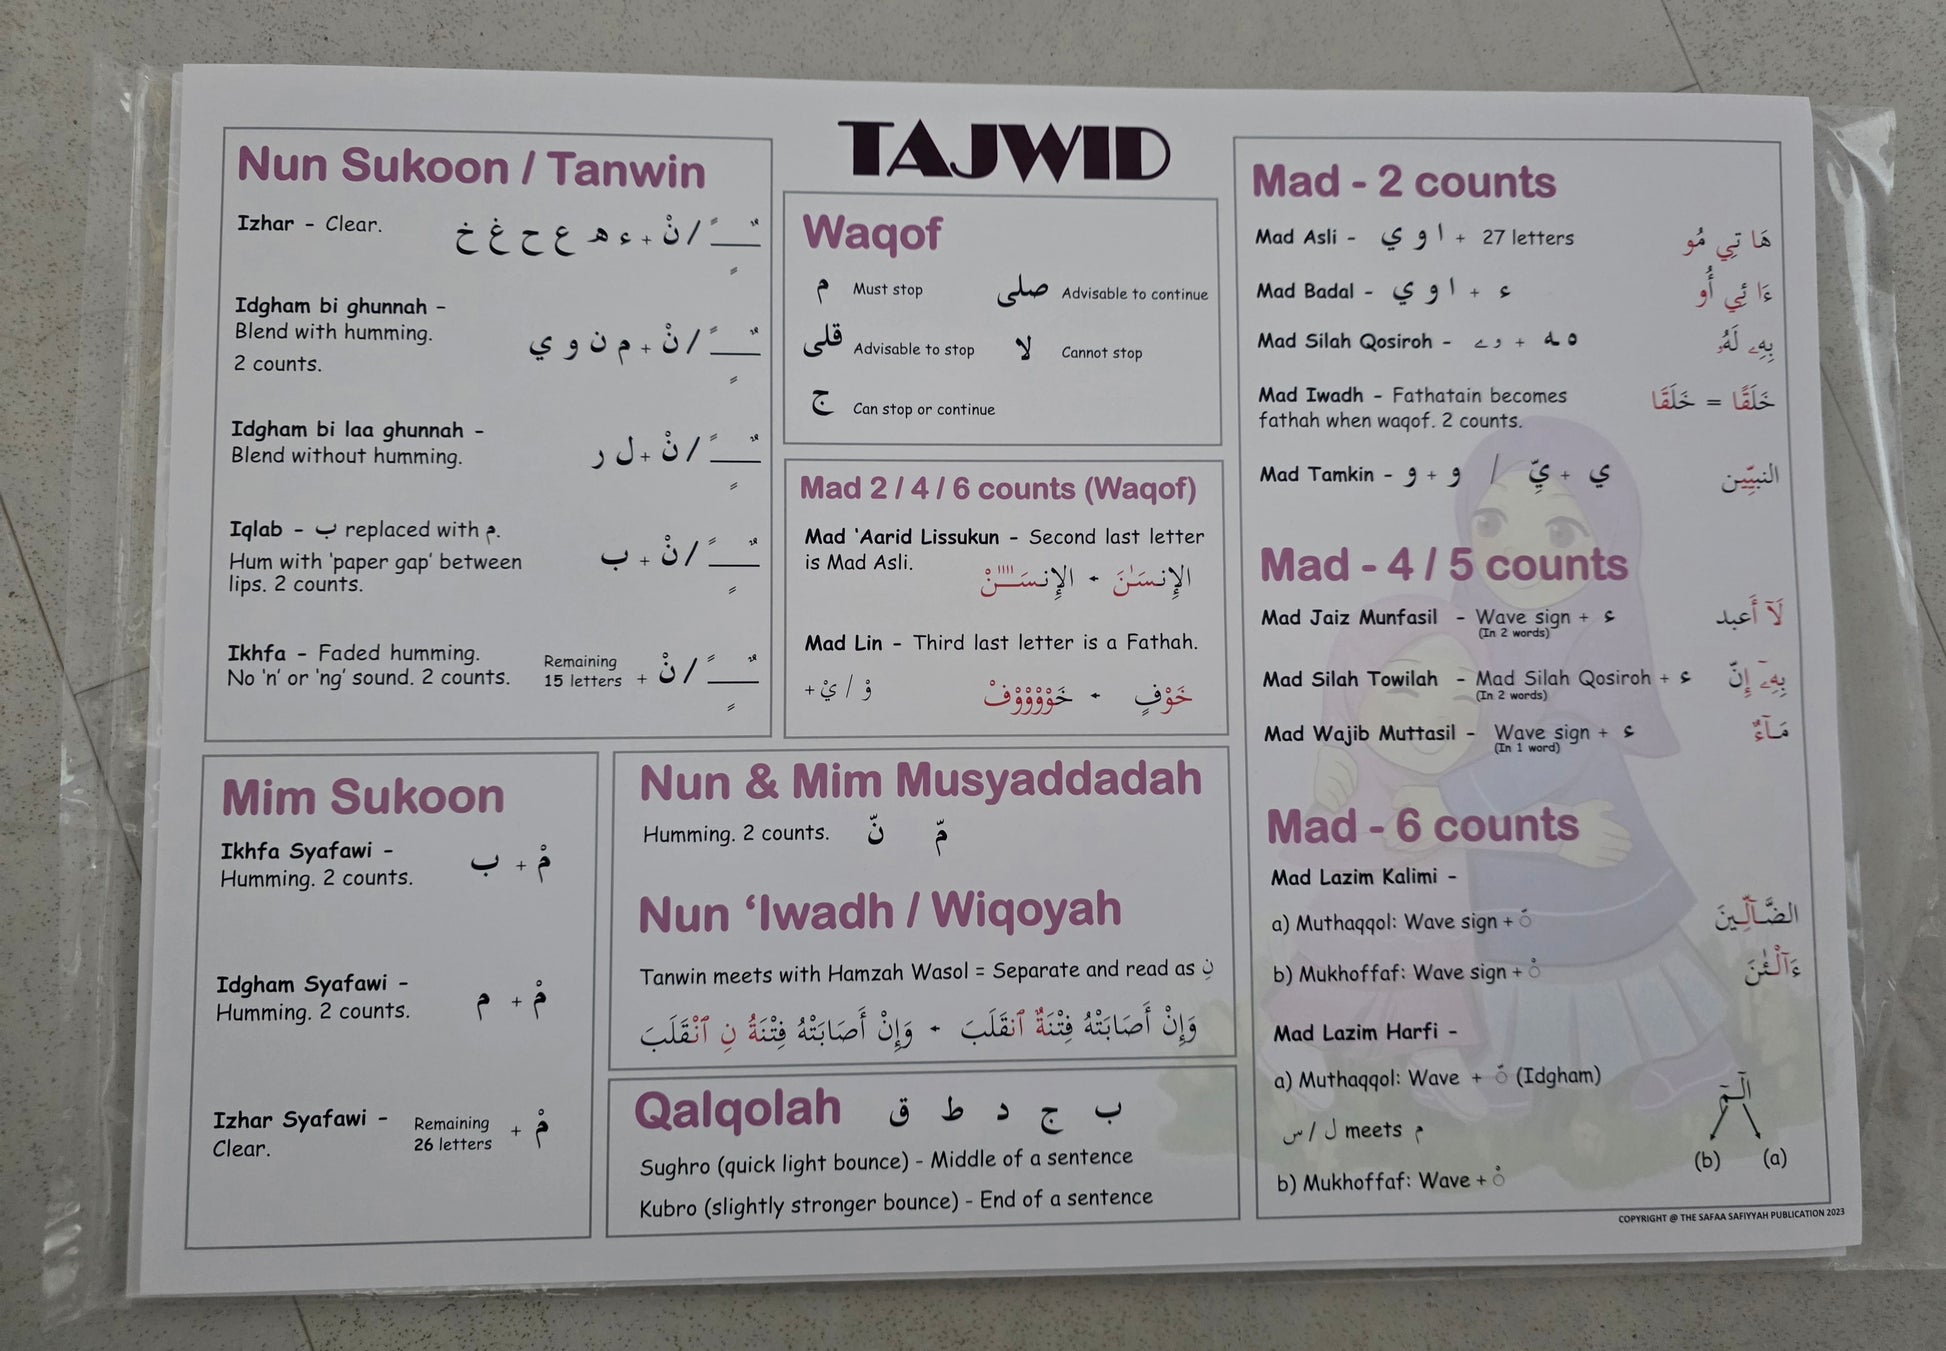 TAJWID
Nun Sukoon / Tanwin
Izhar - Clear.
خ غ ح ع ه ء + نْ / ـًـٌـٍ
Idgham bi ghunnah -
Blend with humming.
2 counts.
ي و ن م + نْ / ـًـٌـٍ
Idgham bi laa ghunnah -
Blend without humming.
ر ل + نْ / ـًـٌـٍ
Iqlab - ب replaced with م.
Hum with 'paper gap' between
lips. 2 counts.
ب + نْ / ـًـٌـٍ
Ikhfa - Faded humming.
No 'n' or 'ng' sound. 2 counts.
Remaining
15 letters + نْ / ـًـٌـٍ
Mim Sukoon
Ikhfa Syafawi -
Humming. 2 counts.
ب + مْ
Idgham Syafawi -
Humming. 2 counts.
م + مْ
Izhar Syafawi -
Clear.
Remaining
26 letters + مْ
Waqof
م Must stop
صلى Advisable to continue
قلى Advisable to stop
لا Cannot stop
ج Can stop or continue
Mad 2 / 4 / 6 counts (Waqof)
Mad 'Aarid Lissukun - Second last letter
is Mad Asli.
الإِنسَـٰنَ - الإِنسَـٰنْ
Mad Lin - Third last letter is a Fathah.
+ يْ / وْ
خَوْفٍ - خَوْوْوْوْفْ
Nun & Mim Musyaddadah
Humming. 2 counts. نّ مّ
Nun 'Iwadh / Wiqoyah
Tanwin meets with Hamzah Wasol = Separate and read as نِ
وَإِنْ أَصَابَتْهُ فِتْنَةٌ ٱنقَلَبَ - وَإِنْ أَصَابَتْهُ فِتْنَةُ نِ ٱنْقَلَبَ
Qalqolah ق ط د ج ب
Sughro (quick light bounce) - Middle of a sentence
Kubro (slightly stronger bounce) - End of a sentence
Mad - 2 counts
Mad Asli - ي و ا + 27 letters
هَا تِي مُو
Mad Badal - ي و ا + ء
ءَا ئِي أُو
Mad Silah Qosiroh - ے و + ـه ه
بِهِۦ لَهُۥ
Mad Iwadh - Fathatain becomes
fathah when waqof. 2 counts.
خَلَقًا = خَلَقَا
Mad Tamkin - و + و / يِّ + ي
النبيّين
Mad - 4 / 5 counts
Mad Jaiz Munfasil - Wave sign + ء
(In 2 words)
لَآ أَعبد
Mad Silah Towilah - Mad Silah Qosiroh + ء
(In 2 words)
بِهِۦٓ إِنّ
Mad Wajib Muttasil - Wave sign + ء
(In 1 word)
مَآءٌ
Mad - 6 counts
Mad Lazim Kalimi -
a) Muthaqqol: Wave sign + ّ
الضَّآلِّينَ
b) Mukhoffaf: Wave sign + ْ
ءَآلْـَٰٔنَ
Mad Lazim Harfi -
a) Muthaqqol: Wave + ّ (Idgham)
س / ل meets م
b) Mukhoffaf: Wave + ْ
الٓمٓ
(b) (a)
COPYRIGHT @ THE SAFAA SAFIYYAH PUBLICATION 2023